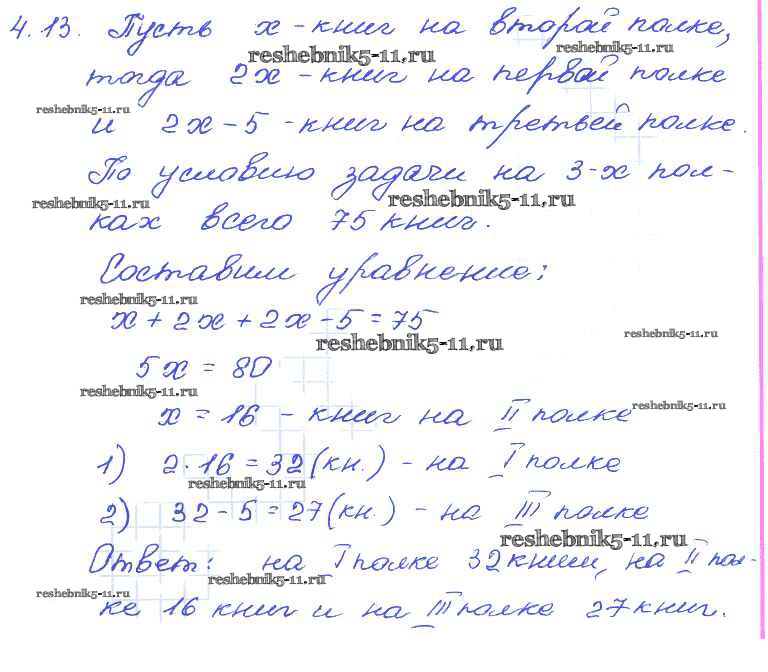 4.13. Пусть x - книг на второй полке,
reshebnik5-11.ru reshebnik5-11.ru
тогда 2x - книг на первой полке
reshebnik5-11.ru
и 2x - 5 - книг на третьей полке.
По условию задачи на 3-х пол-
reshebnik5-11.ru reshebnik5-11.ru
ках всего 75 книг.
Составим уравнение:
reshebnik5-11.ru
x + 2x + 2x - 5 = 75
reshebnik5-11.ru reshebnik5-11.ru
5x = 80
reshebnik5-11.ru
x = 16 - книг на II полке
reshebnik5-11.ru
1) 2·16 = 32 (кн.) - на I полке
reshebnik5-11.ru
2) 32 - 5 = 27 (кн.) - на III полке
reshebnik5-11.ru
Ответ: на I полке 32 книги, на II пол-
reshebnik5-11.ru
reshebnik5-11.ru
ке 16 книг и на III полке 27 книг.